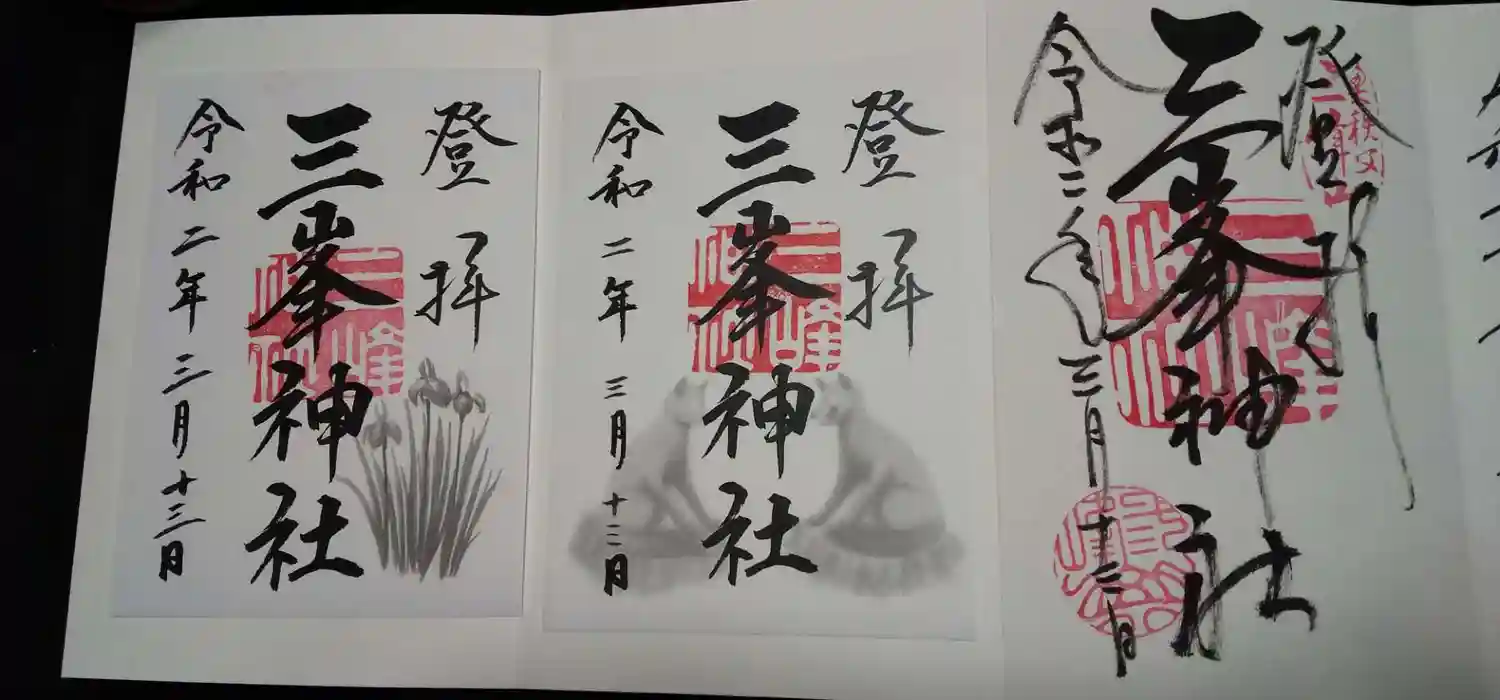 登拝
奥秩父
三峯神社
令和二年三月十三日
登拝
三峯神社
令和二年三月
登拝
三峯神社
令和二年三月十三日